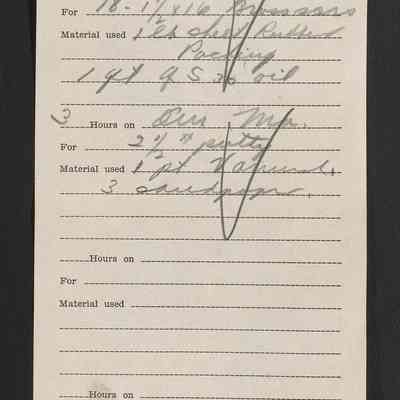 For 18 - 1/2 x 16
Material used 1 lb Sheet Rubber
Packing
1 qt G S 30 oil
3 Hours on Our Mr.
For 2 1/2 # putty
Material used 1 pt Varnish.
3 sandpaper.
Hours on
For
Material used
Hours on